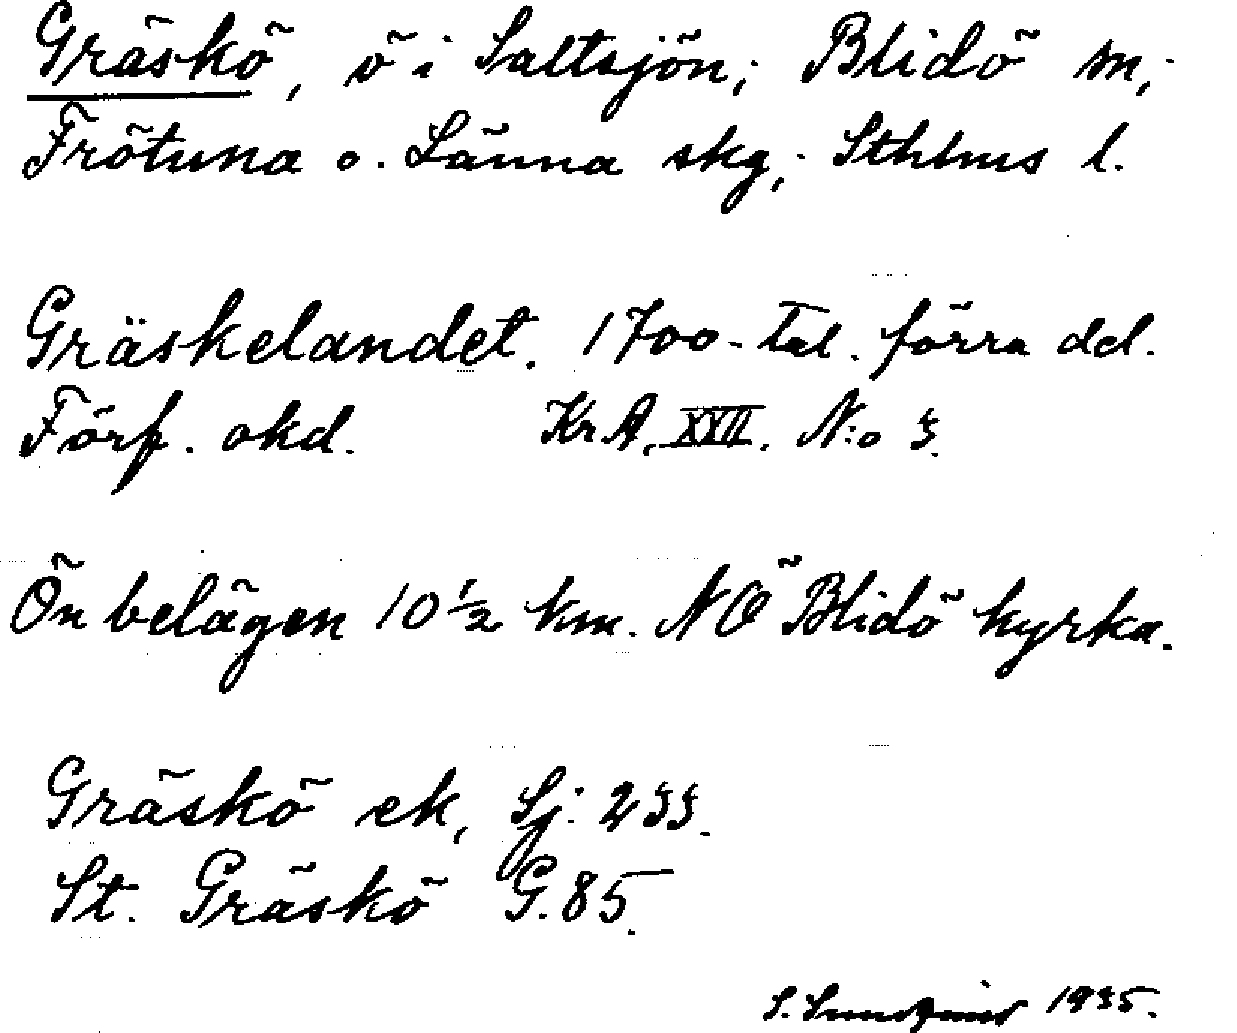 Gräskö, ö i Saltsjön; Blidö sn,
Frötuna o. Länna skg, Sthlms l.
Gräskelandet. 1700-tal. förra del.
Förf. okd. KrA, XVII. N:o 3.
Ön belägen 10 ½ km. NÖ Blidö kyrka.
Gräskö ek, Sj: 233.
St. Gräskö G. 85.
S. 1935.